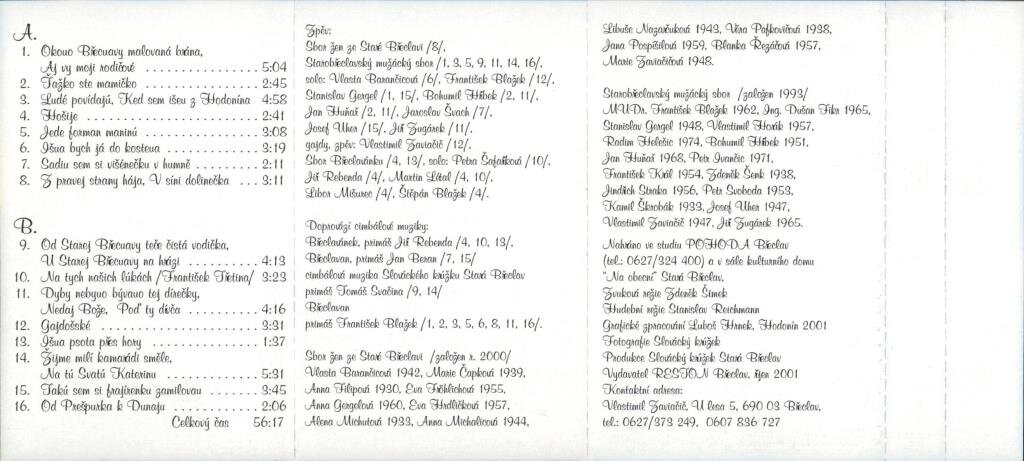 A.
1. Okouo Břecuavy malovaná brána,
Aj vy moji rodičové ................. 5:04
2. Ťažko ste mamičko ................. 2:45
3. Ludé povídajú, Ked sem išeu z Hodonína 4:58
4. Hošije ................. 2:41
5. Jede forman maninú ................. 3:08
6. Išua bych já do kosteua ................. 3:19
7. Sadiu sem si višénečku v humně ......... 2:11
8. Z pravej strany hája, V síni dolinečka ... 3:11
B.
9. Od Starej Břecuavy teče čistá vodička,
U Starej Břecuavy na hrázi ............ 4:13
10. Na tych našich lúkách /František Tietina/ 3:23
11. Dyby nebyuo bývauo tej direčky,
Nedaj Bože, Poď ty divča ............ 4:16
12. Gajdošské ................. 3:31
13. Išua psota přes hory ................. 1:37
14. Žijme milí kamarádi směle,
Na tú Svatú Katerinu ................. 5:31
15. Takú sem si frajírenku zamilovau ....... 3:45
16. Od Prešpurka k Dunaju .............. 2:06
Celkový čas 56:17
Zpěv:
Sbor žen ze Staré Břeclavi /8/,
Starobřeclavský mužácký sbor /1, 3, 5, 9, 11, 14, 16/,
solo: Vlasta Barančicová /6/, František Blažek /12/,
Stanislav Gergel /1, 15/, Bohumil Hřibek /2, 11/,
Jan Huňař /2, 11/, Jaroslav Švach /7/,
Josef Uher /15/, Jiří Zugárek /11/,
gajdy, zpěv: Vlastimil Zaviačič /12/,
Sbor Břeclavánku /4, 13/, solo: Petra Šafaříková /10/,
Jiří Rebenda /4/, Martin Lítal /4, 10/,
Libor Mišurec /4/, Štěpán Blažek /4/.
Doprovází cimbálové muziky:
Břeclavánek, primáš Jiří Rebenda /4, 10, 13/,
Břeclavan, primáš Jan Beran /7, 15/
cimbálová muzika Slováckého krúžku Stará Břeclav
primáš Tomáš Svačina /9, 14/
Břeclavan
primáš František Blažek /1, 2, 3, 5, 6, 8, 11, 16/.
Sbor žen ze Staré Břeclavi /založen r. 2000/
Vlasta Barančicová 1942, Marie Čapková 1939,
Anna Filipová 1930, Eva Fröhlichová 1955,
Anna Gergelová 1960, Eva Hrdličková 1957,
Alena Michutová 1933, Anna Michalicová 1944,
Libuše Nazarčuková 1943, Věra Pafkovičová 1938,
Jana Pospíšilová 1959, Blanka Řezáčová 1957,
Marie Zaviačičová 1948.
Starobřeclavský mužácký sbor /založen 1993/
MUDr. František Blažek 1962, Ing. Dušan Fikr 1965,
Stanislav Gergel 1948, Vlastimil Horák 1957,
Radim Helešic 1974, Bohumil Hřibek 1951,
Jan Huňař 1968, Petr Ivančic 1971,
František Král 1954, Zdeněk Šenk 1938,
Jindřich Straka 1956, Petr Svoboda 1953,
Kamil Škrobák 1933, Josef Uher 1947,
Vlastimil Zaviačič 1947, Jiří Zugárek 1965.
Nahráno ve studiu POHODA Břeclav
(tel.: 0627/324 400) a v sále kulturního domu
"Na obecní" Stará Břeclav.
Zvuková režie Zdeněk Šimek
Hudební režie Stanislav Reichmann
Grafické zpracování Luboš Hrnek, Hodonín 2001
Fotografie Slovácký krúžek
Produkce Slovácký krúžek Stará Břeclav
Vydavatel RESTON Břeclav, říjen 2001
Kontaktní adresa:
Vlastimil Zaviačič, U lesa 5, 690 03 Břeclav,
tel.: 0627/373 249, 0607 836 727